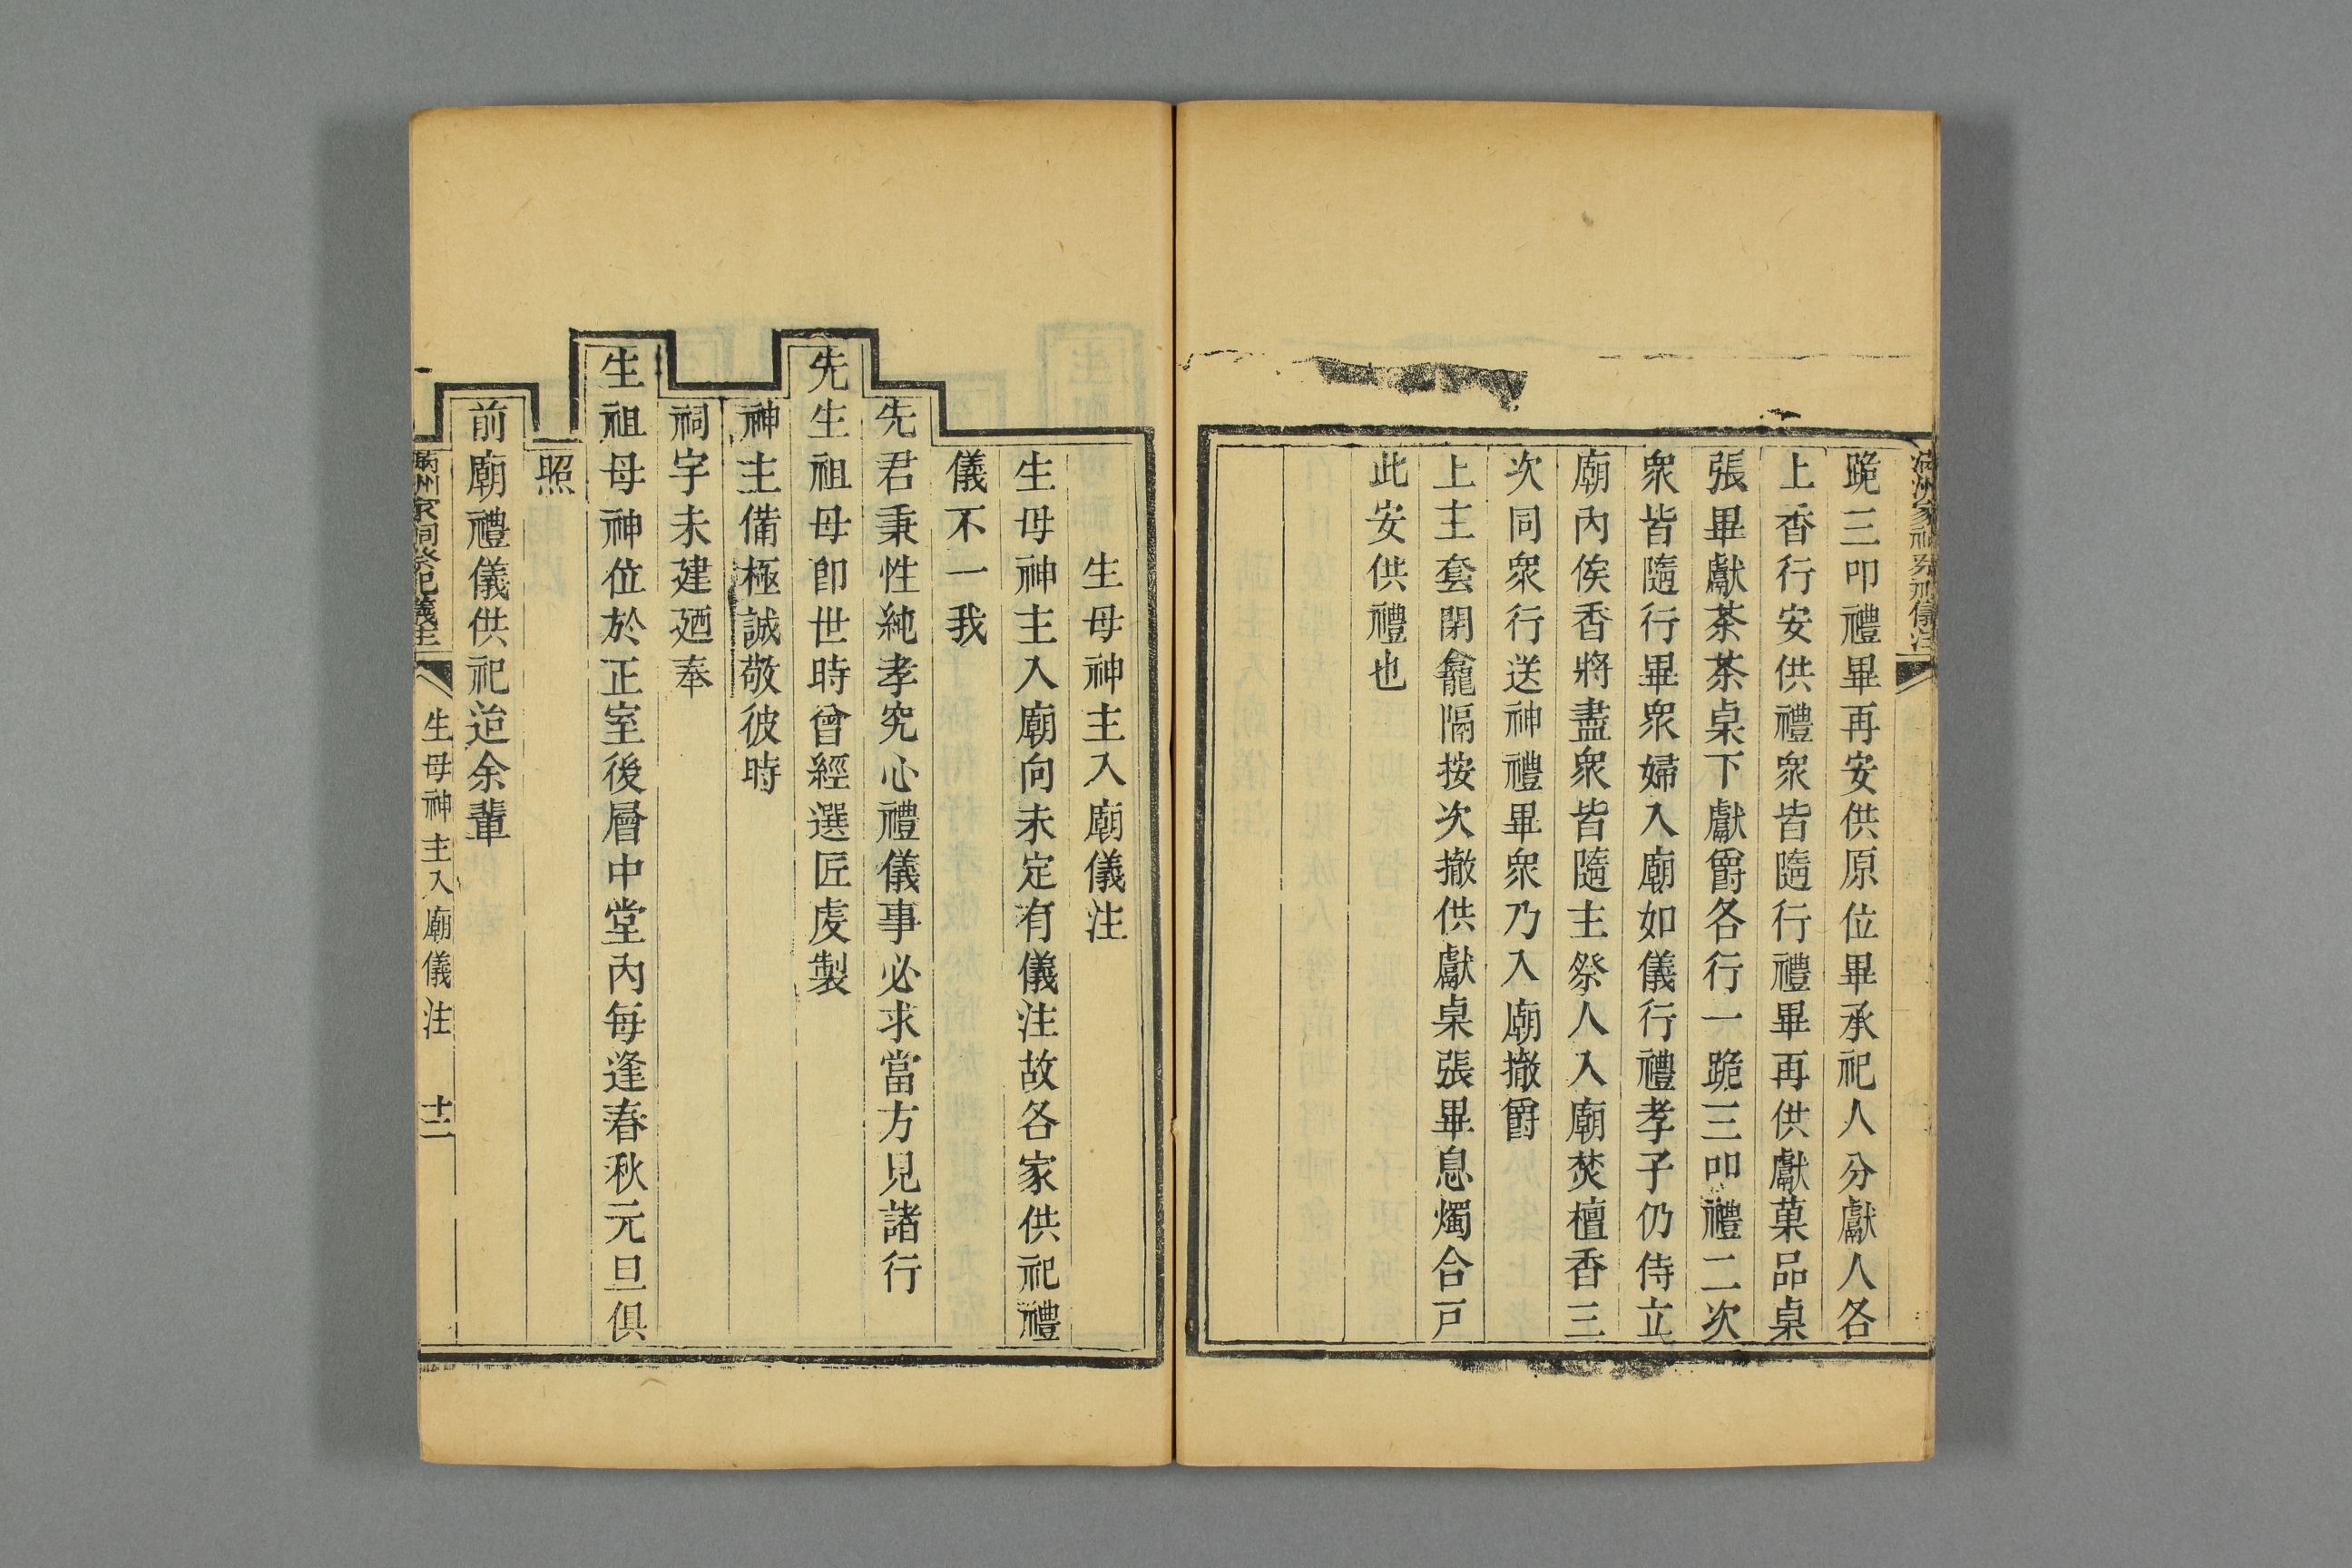 跪三叩禮畢再安供原位畢承祀人分獻人各
上香行安供禮衆皆隨行禮畢再供獻菓品桌
張畢獻茶茶桌下獻爵各行一跪三叩禮二次
衆皆隨行畢衆婦入廟如儀行禮孝子仍侍立
廟內俟香將盡衆皆隨主祭人入廟焚檀香三
次同衆行送神禮畢衆乃入廟撤爵
上主套閉龕隔按次撤供獻桌張畢息燭合戸
此安供禮也
生母神主入廟儀注
生母神主入廟向未定有儀注故各家供祀禮
儀不一我
先君秉性純孝究心禮儀事必求當方見諸行
先生祖母卽世時曾經選匠虔製
神主備極誠敬彼時
祠宇未建廼奉
生祖母神位於正室後層中堂內每逢春秋元旦俱
照
前廟禮儀供祀迨余輩
滿洲家祠祭祀儀注
生母神主入廟儀注
十二